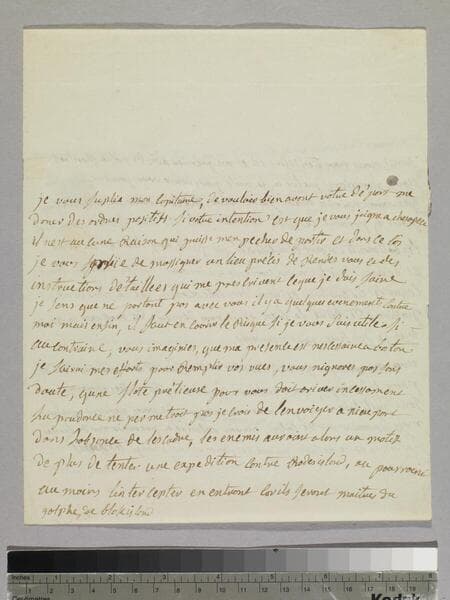 je vous suplie mon Capitaine, de vouloir bien avant votre dépars me
doner des ordres positifs si votre intention est que je vous joigne a chesapeak
il nest aucune raison qui puisse men pecher de partir et dans ce cas
je vous suplie de massigner un lieu précis de rendés vous et des
instructions detaillées qui me prescrivent ceque je dois faire
je sens que ne partant pas avec vous il y a quelque evenement contre
moi mais enfin, il faut en courir le risque si je vous suis utile si
au contraire, vous imaginies, que ma présence est nescessaire a boston
je fairai mes efforts pour remplir vos vues, vous nignores pas sans
doute, qune flote prétieuse pour vous doit ariver incessament
la prudence ne permetroit pas je crois de lenvoieyer a nieuport
dans labsence de lescadre, les enemis auroient alors un motif
de plus de tenter une expedition contre Rhodeisland, ou pourroient
au moins lintercepter en entrant cor ils seront maitres du
golphe de blokisland
Inches
Centimetres
Kodak